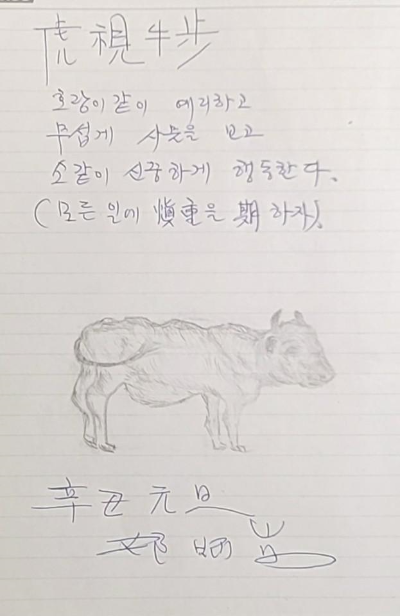 虎視牛步
호랑이같이 예리하고
무섭게 사물을 보고
소같이 신중하게 행동한다.
(모든 일에 愼重을 期하자).
辛丑 元旦